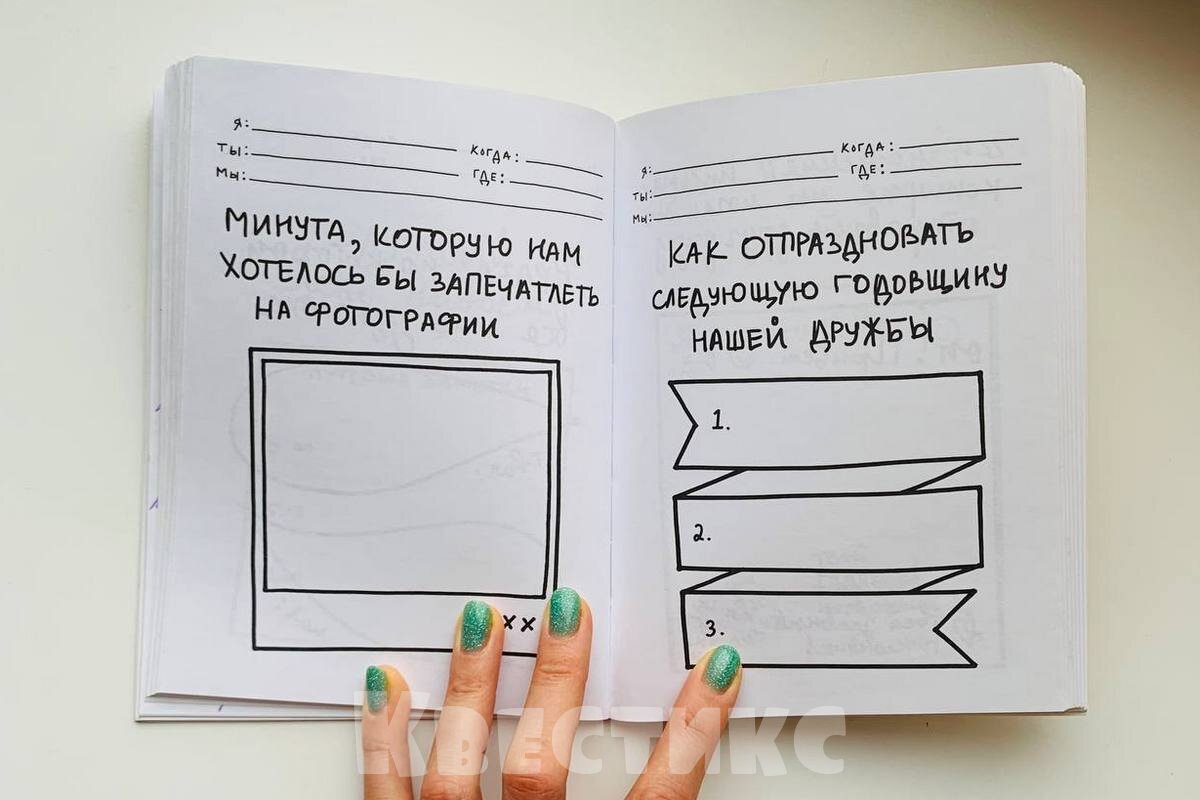 Я:
КОГДА:
ТЫ:
ГДЕ:
МЫ:
МИНУТА, КОТОРУЮ НАМ
ХОТЕЛОСЬ БЫ ЗАПЕЧАТЛЕТЬ
НА ФОТОГРАФИИ
XX
КОГДА:
Я:
ГДЕ:
ТЫ:
МЫ:
КАК ОТПРАЗДНОВАТЬ
СЛЕДУЮЩУЮ ГОДОВЩИНУ
НАШЕЙ ДРУЖБЫ
1.
2.
3.
КВЕСТИКС